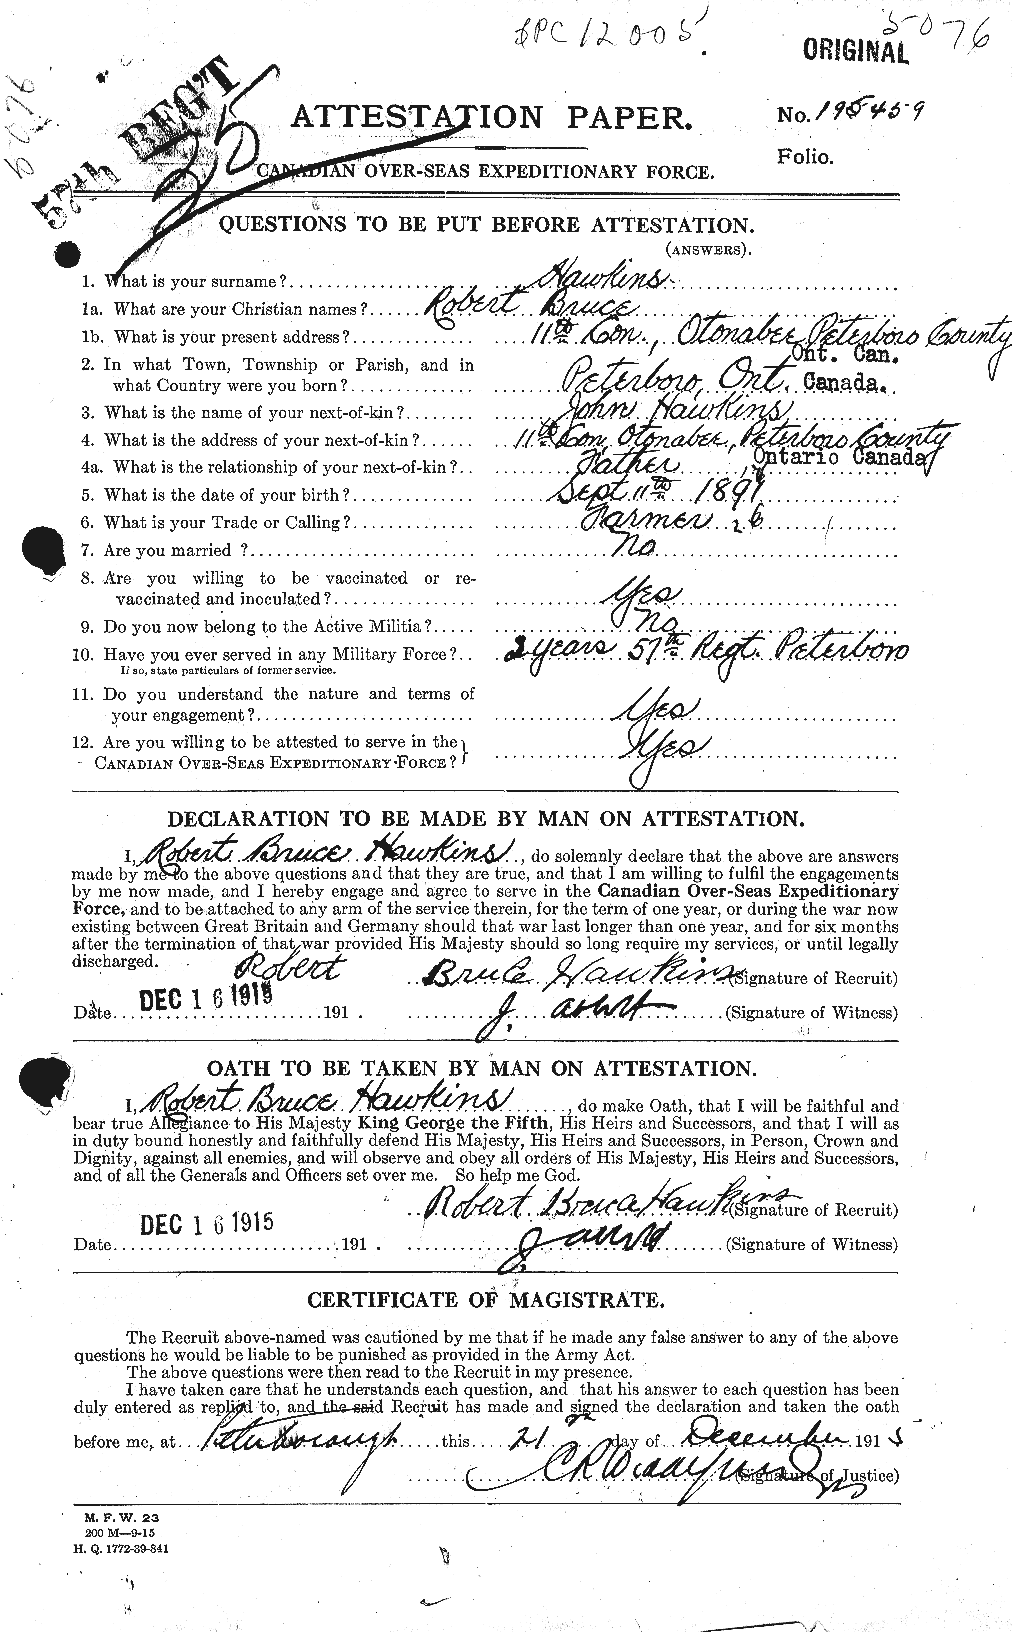 $PC 12005.
5076
ORIGINAL
57th REGT
25
ATTESTATION PAPER.
No. 195459
Folio.
CANADIAN OVER-SEAS EXPEDITIONARY FORCE.
QUESTIONS TO BE PUT BEFORE ATTESTATION.
(ANSWERS).
1. What is your surname? Hawkins
1a. What are your Christian names? Robert Bruce
1b. What is your present address? 11th Con., Otonabee, Peterboro County
Ont. Can.
2. In what Town, Township or Parish, and in
what Country were you born? Peterboro, Ont. Canada.
3. What is the name of your next-of-kin? John Hawkins
4. What is the address of your next-of-kin? 11th Con, Otonabee, Peterboro County
Ontario Canada
4a. What is the relationship of your next-of-kin? Father
5. What is the date of your birth? Sept 11th 1891
6. What is your Trade or Calling? Farmer 26
7. Are you married ? No
8. Are you willing to be vaccinated or re-
vaccinated and inoculated? Yes
9. Do you now belong to the Active Militia? No
10. Have you ever served in any Military Force? 2 years 57th Regt. Peterboro
If so, state particulars of former service.
11. Do you understand the nature and terms of
your engagement? Yes
12. Are you willing to be attested to serve in the
CANADIAN OVER-SEAS EXPEDITIONARY FORCE? Yes
DECLARATION TO BE MADE BY MAN ON ATTESTATION.
I, Robert Bruce Hawkins, do solemnly declare that the above are answers
made by me to the above questions and that they are true, and that I am willing to fulfil the engagements
by me now made, and I hereby engage and agree to serve in the Canadian Over-Seas Expeditionary
Force, and to be attached to any arm of the service therein, for the term of one year, or during the war now
existing between Great Britain and Germany should that war last longer than one year, and for six months
after the termination of that war provided His Majesty should so long require my services, or until legally
discharged.
Robert Bruce Hawkins (Signature of Recruit)
Date DEC 16 1915 191 . J. (Signature of Witness)
OATH TO BE TAKEN BY MAN ON ATTESTATION.
I, Robert Bruce Hawkins, do make Oath, that I will be faithful and
bear true Allegiance to His Majesty King George the Fifth, His Heirs and Successors, and that I will as
in duty bound honestly and faithfully defend His Majesty, His Heirs and Successors, in Person, Crown and
Dignity, against all enemies, and will observe and obey all orders of His Majesty, His Heirs and Successors,
and of all the Generals and Officers set over me. So help me God.
Robert Bruce Hawkins (Signature of Recruit)
Date DEC 16 1915 191 . J. (Signature of Witness)
CERTIFICATE OF MAGISTRATE.
The Recruit above-named was cautioned by me that if he made any false answer to any of the above
questions he would be liable to be punished as provided in the Army Act.
The above questions were then read to the Recruit in my presence.
I have taken care that he understands each question, and that his answer to each question has been
duly entered as replied to, and the said Recruit has made and signed the declaration and taken the oath
before me, at Peterborough this 21st day of December 1915
(Signature of Justice)
M. F. W. 23
200 M—9-15
H. Q. 1772-39-841